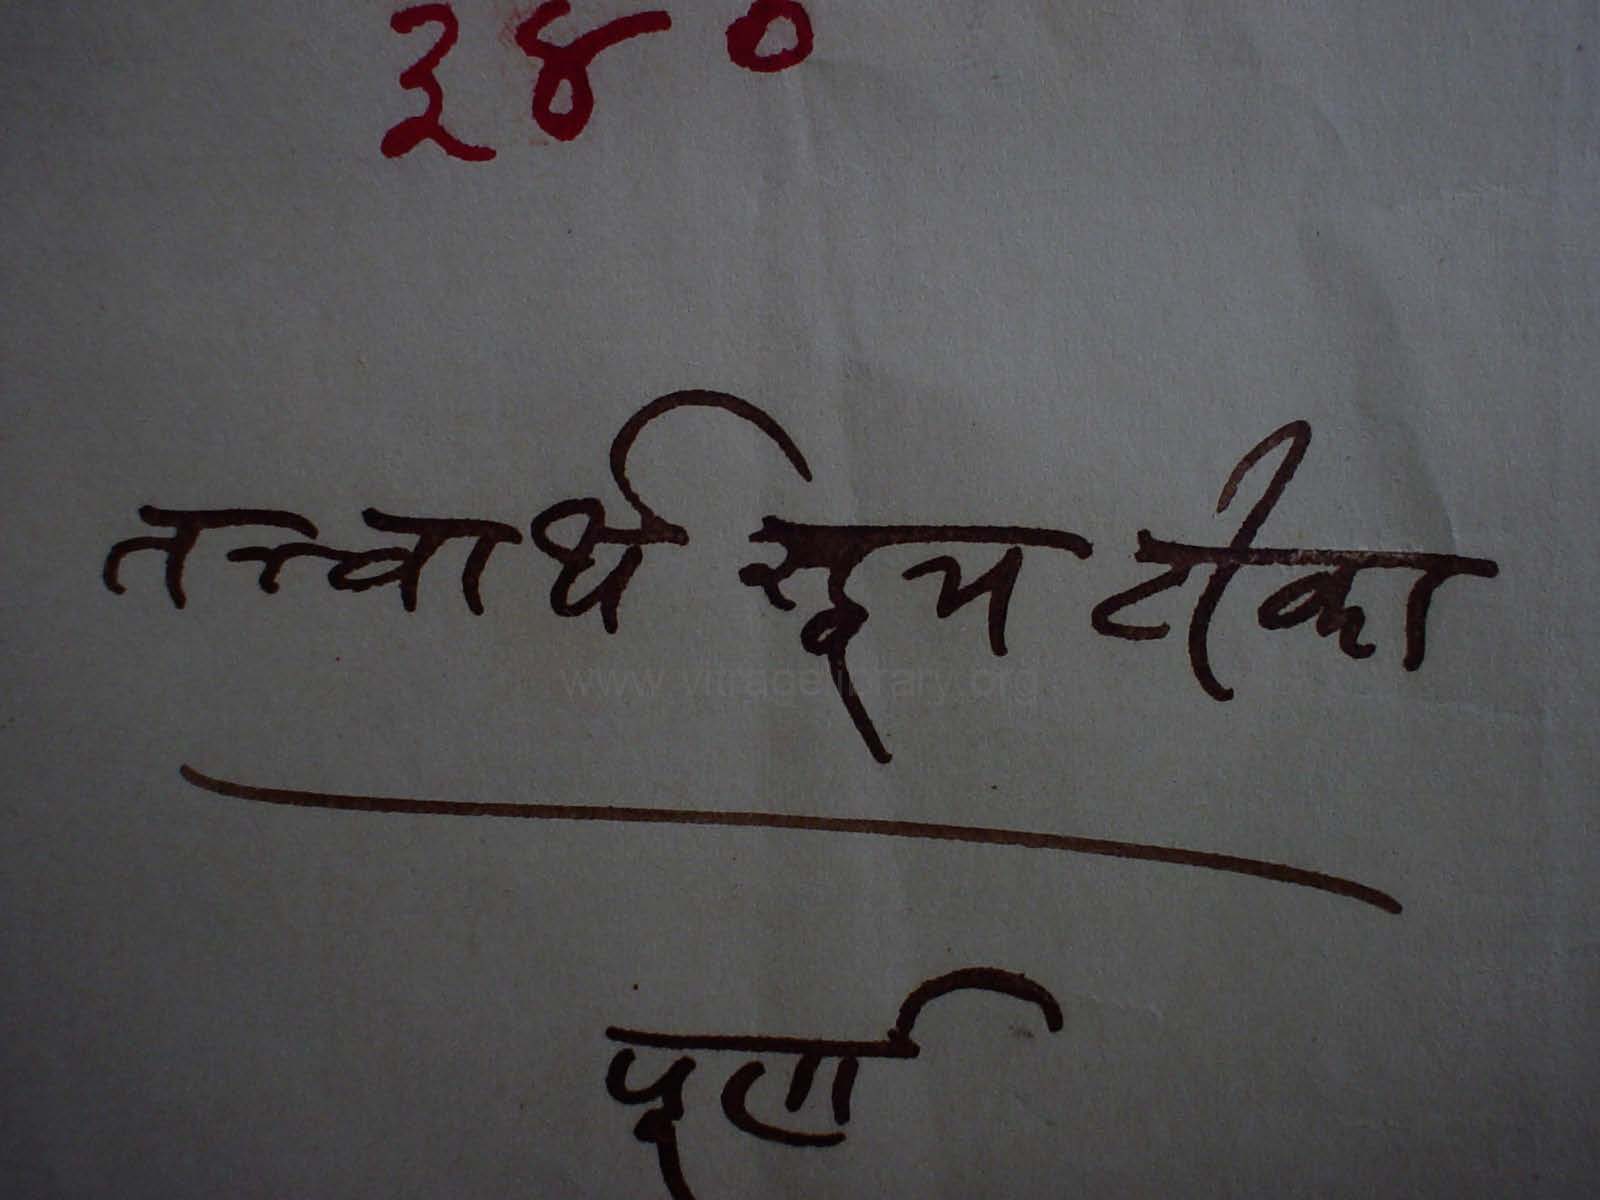 ३४०
तत्त्वार्थ सूत्र टीका
www.vitragelibrary.org
पूर्ण